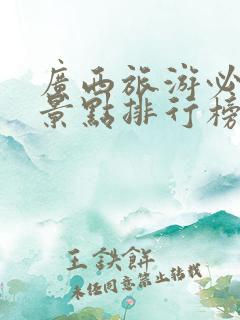 廣西旅游必
景點排行榜
王鉄餅
未经同意禁止转载